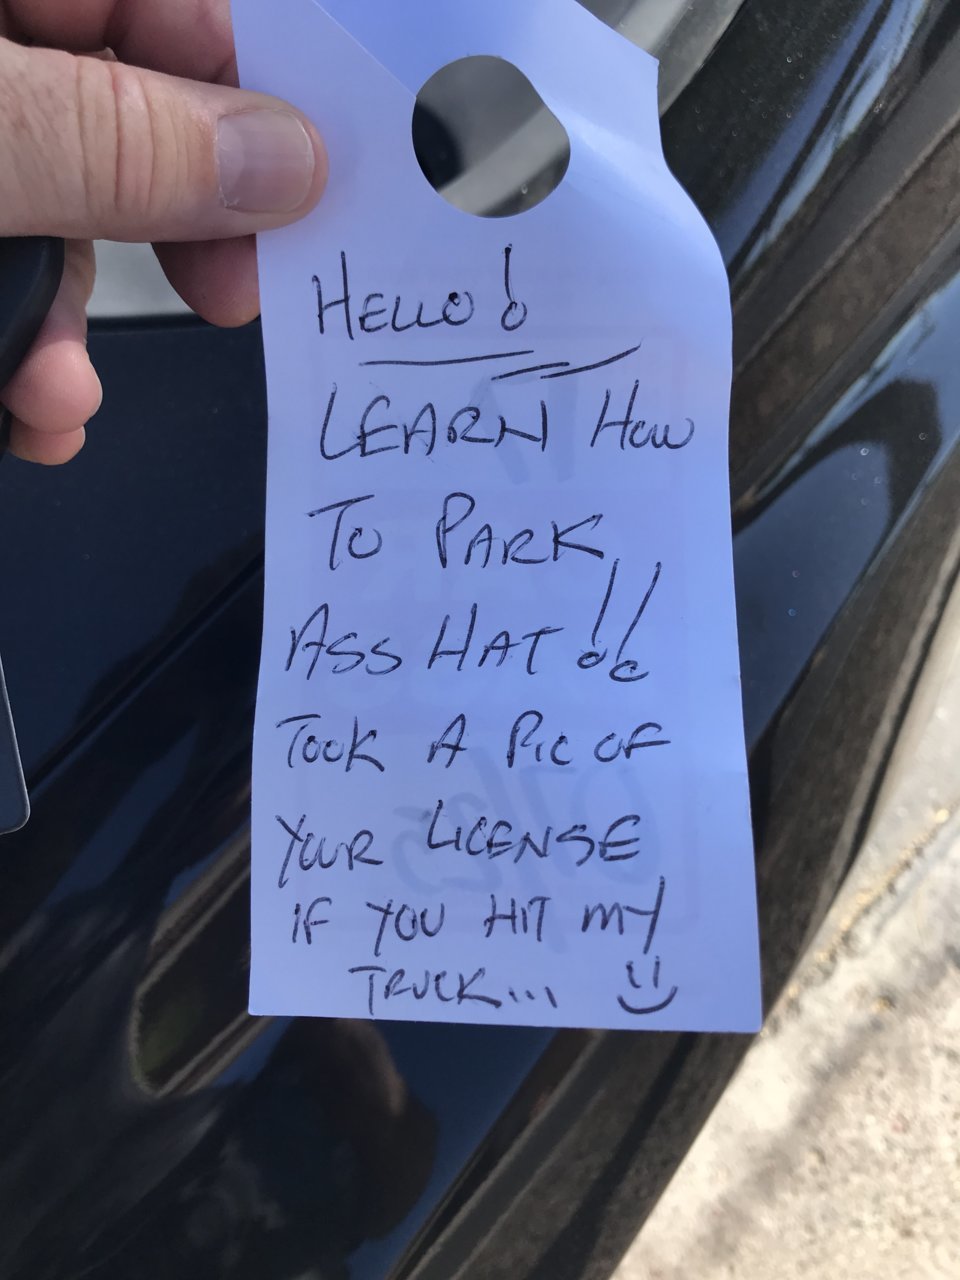 HELLO!
LEARN HOW
TO PARK
ASS HAT!!
TOOK A PIC OF
YOUR LICENSE
IF YOU HIT MY
TRUCK... :)